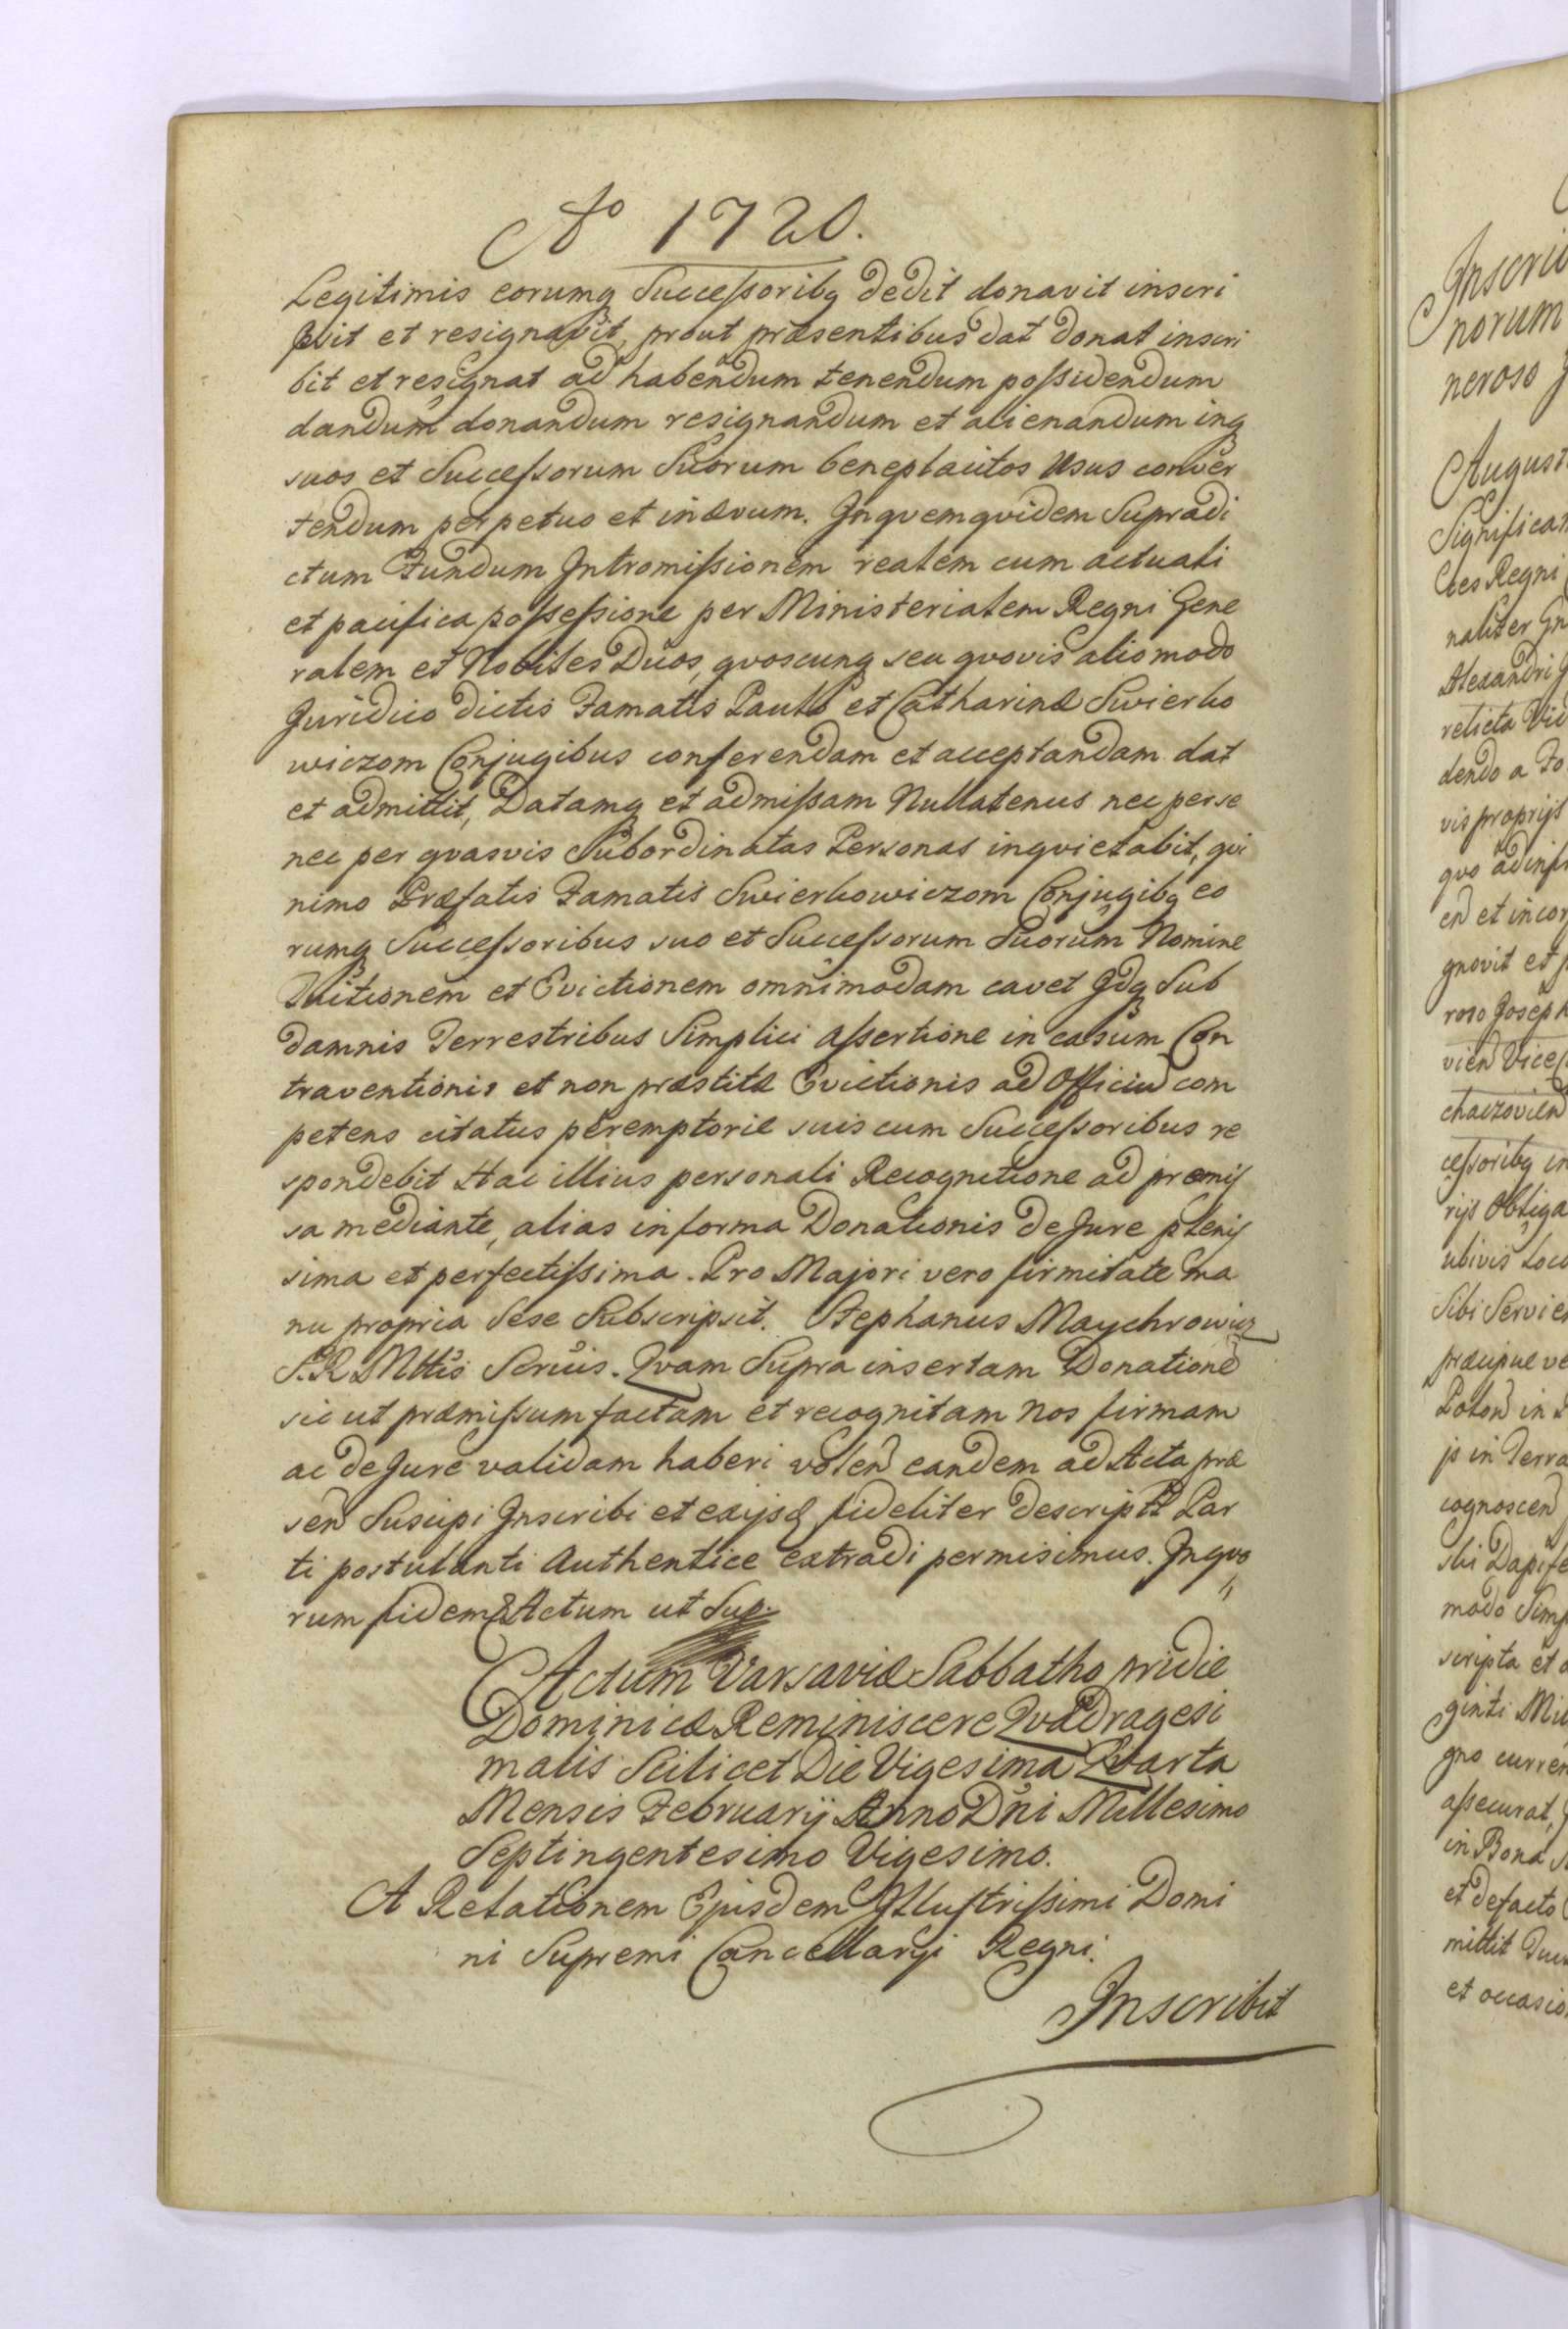 Ao 1720.
Legitimis eorumq Successoribq dedit donavit inscri
psit et resignavit, prout præsentibus dat donat inscri
bit et resignat ad habendum tenendum possidendum
dandum donandum resignandum et alienandum inq
suos et Successorum Suorum beneplacitos Usus conver
tendum perpetuo et inævum. Inqvemqvidem Supradi
ctum Fundum Intromissionem realem cum actuali
et pacifica possessione per Ministerialem Regni Gene
ralem et Nobiles Duos, qvoscunq seu qvovis alio modo
Juridico dictis Famatis Paulo et Catharinæ Swierko
wiczom Conjugibus conferendam et acceptandam dat
et admittit, Datamq et admissam Nullatenus nec per se
nec per qvasvis Subordinatas Personas inqvietabit, qvi
nimo Præfatis Famatis Swierkowiczom Conjugibq eo
rumq Successoribus suo et Successorum Suorum Nomine
Tuitionem et Evictionem omnimodam cavet Idq Sub
damnis Terrestribus Simplici assertione in casum Con
traventionis et non præstitæ Evictionis ad Officiu com
petens citatus peremptorie suis cum Successoribus re
spondebit Hac illius personali Recognitione ad præmis
sa mediante, alias in forma Donationis de Jure plenis
sima et perfectissima. Pro Majori vero firmitate ma
nu propria Sese Subscripsit. Stephanus Maychrowicz
S. R Mttis Scruis. Qvam Supra insertam Donatione
sic ut præmissum factam et recognitam Nos firmam
ac de Jure validam haberi volen eandem ad Acta præ
sen Suscipi Inscribi et exijsq fideliter descriptā Par
ti postulanti Authentice extradi permisimus. Inqvo
rum fidem & Actum ut Sup.
Actum Varsaviæ Sabbatho pridie
Dominicæ Reminiscere Qvadragesi
malis Scilicet Die Vigesima Qvarta
Mensis Februarij Anno Dni Millesimo
Septingentesimo Vigesimo.
A Relationem Ejusdem Illustrissimi Domi
ni Supremi Cancellarij Regni.
Inscribit
Inscri
norum
neroso
August
Significam
ces Regni
naliter
Alexandri
relicta Vid
dendo a
vis proprijs
qvo ad
en et incor
gnovit et
roso Joseph
vien Vice
chaczovien
cessoribq in
rijs Obliga
ubivis Loco
Sibi Servien
præcipue ve
Polon in
js in Terra
cognoscen
ski Dapife
modo Simp
scripta et
ginti Mil
gno curren
assecurat,
in Bona
et defacto
mittit
et occasio